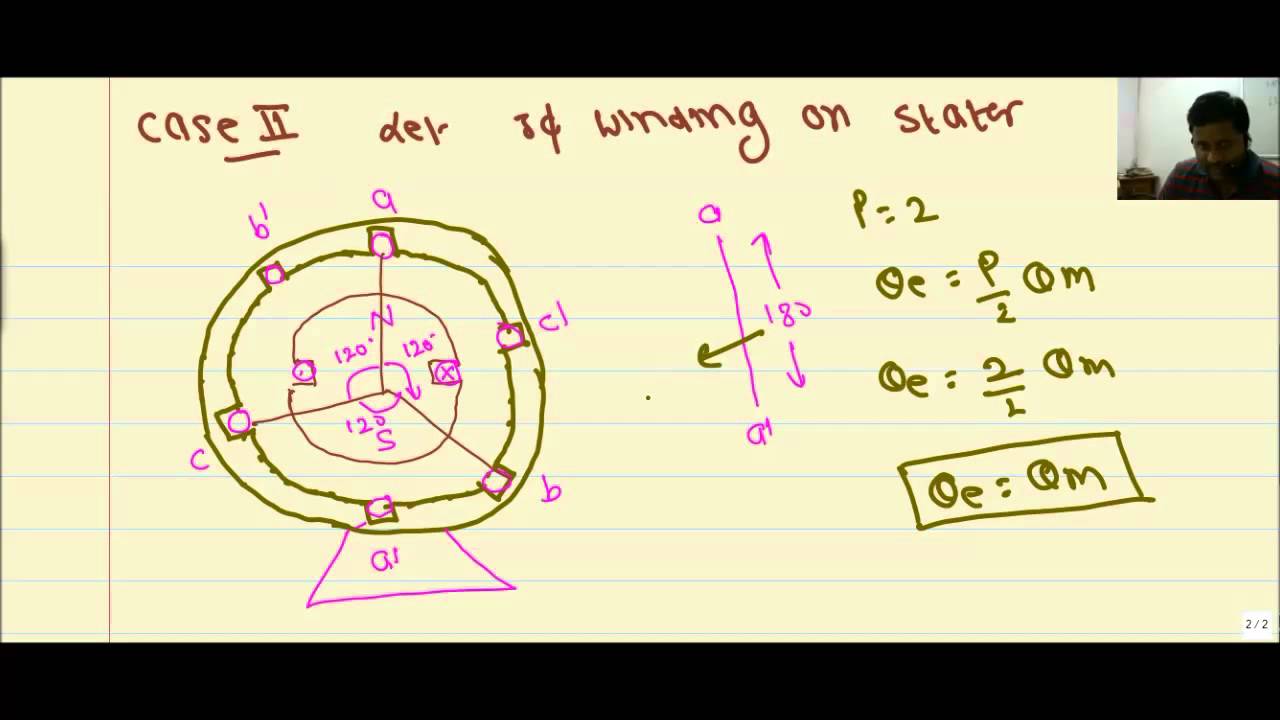 Case II let 3ϕ winding on stator
a
b'
c'
N
120° 120°
120
S
c
b
a'
a
180
a'
P = 2
θe = P/2 θm
θe = 2/2 θm
θe = θm
2 / 2